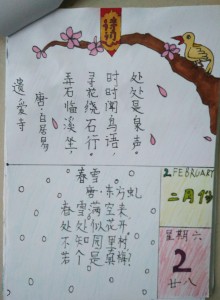 遗爱寺
唐 白居易
弄石临溪坐，
寻花绕石行。
时时闻鸟语，
处处是泉声。
春雪
唐 东方虬
春雪满空来
处处似花开
不知园里树
若个是真梅?
2.FEBRUARY
二月份
星期六
2
廿八